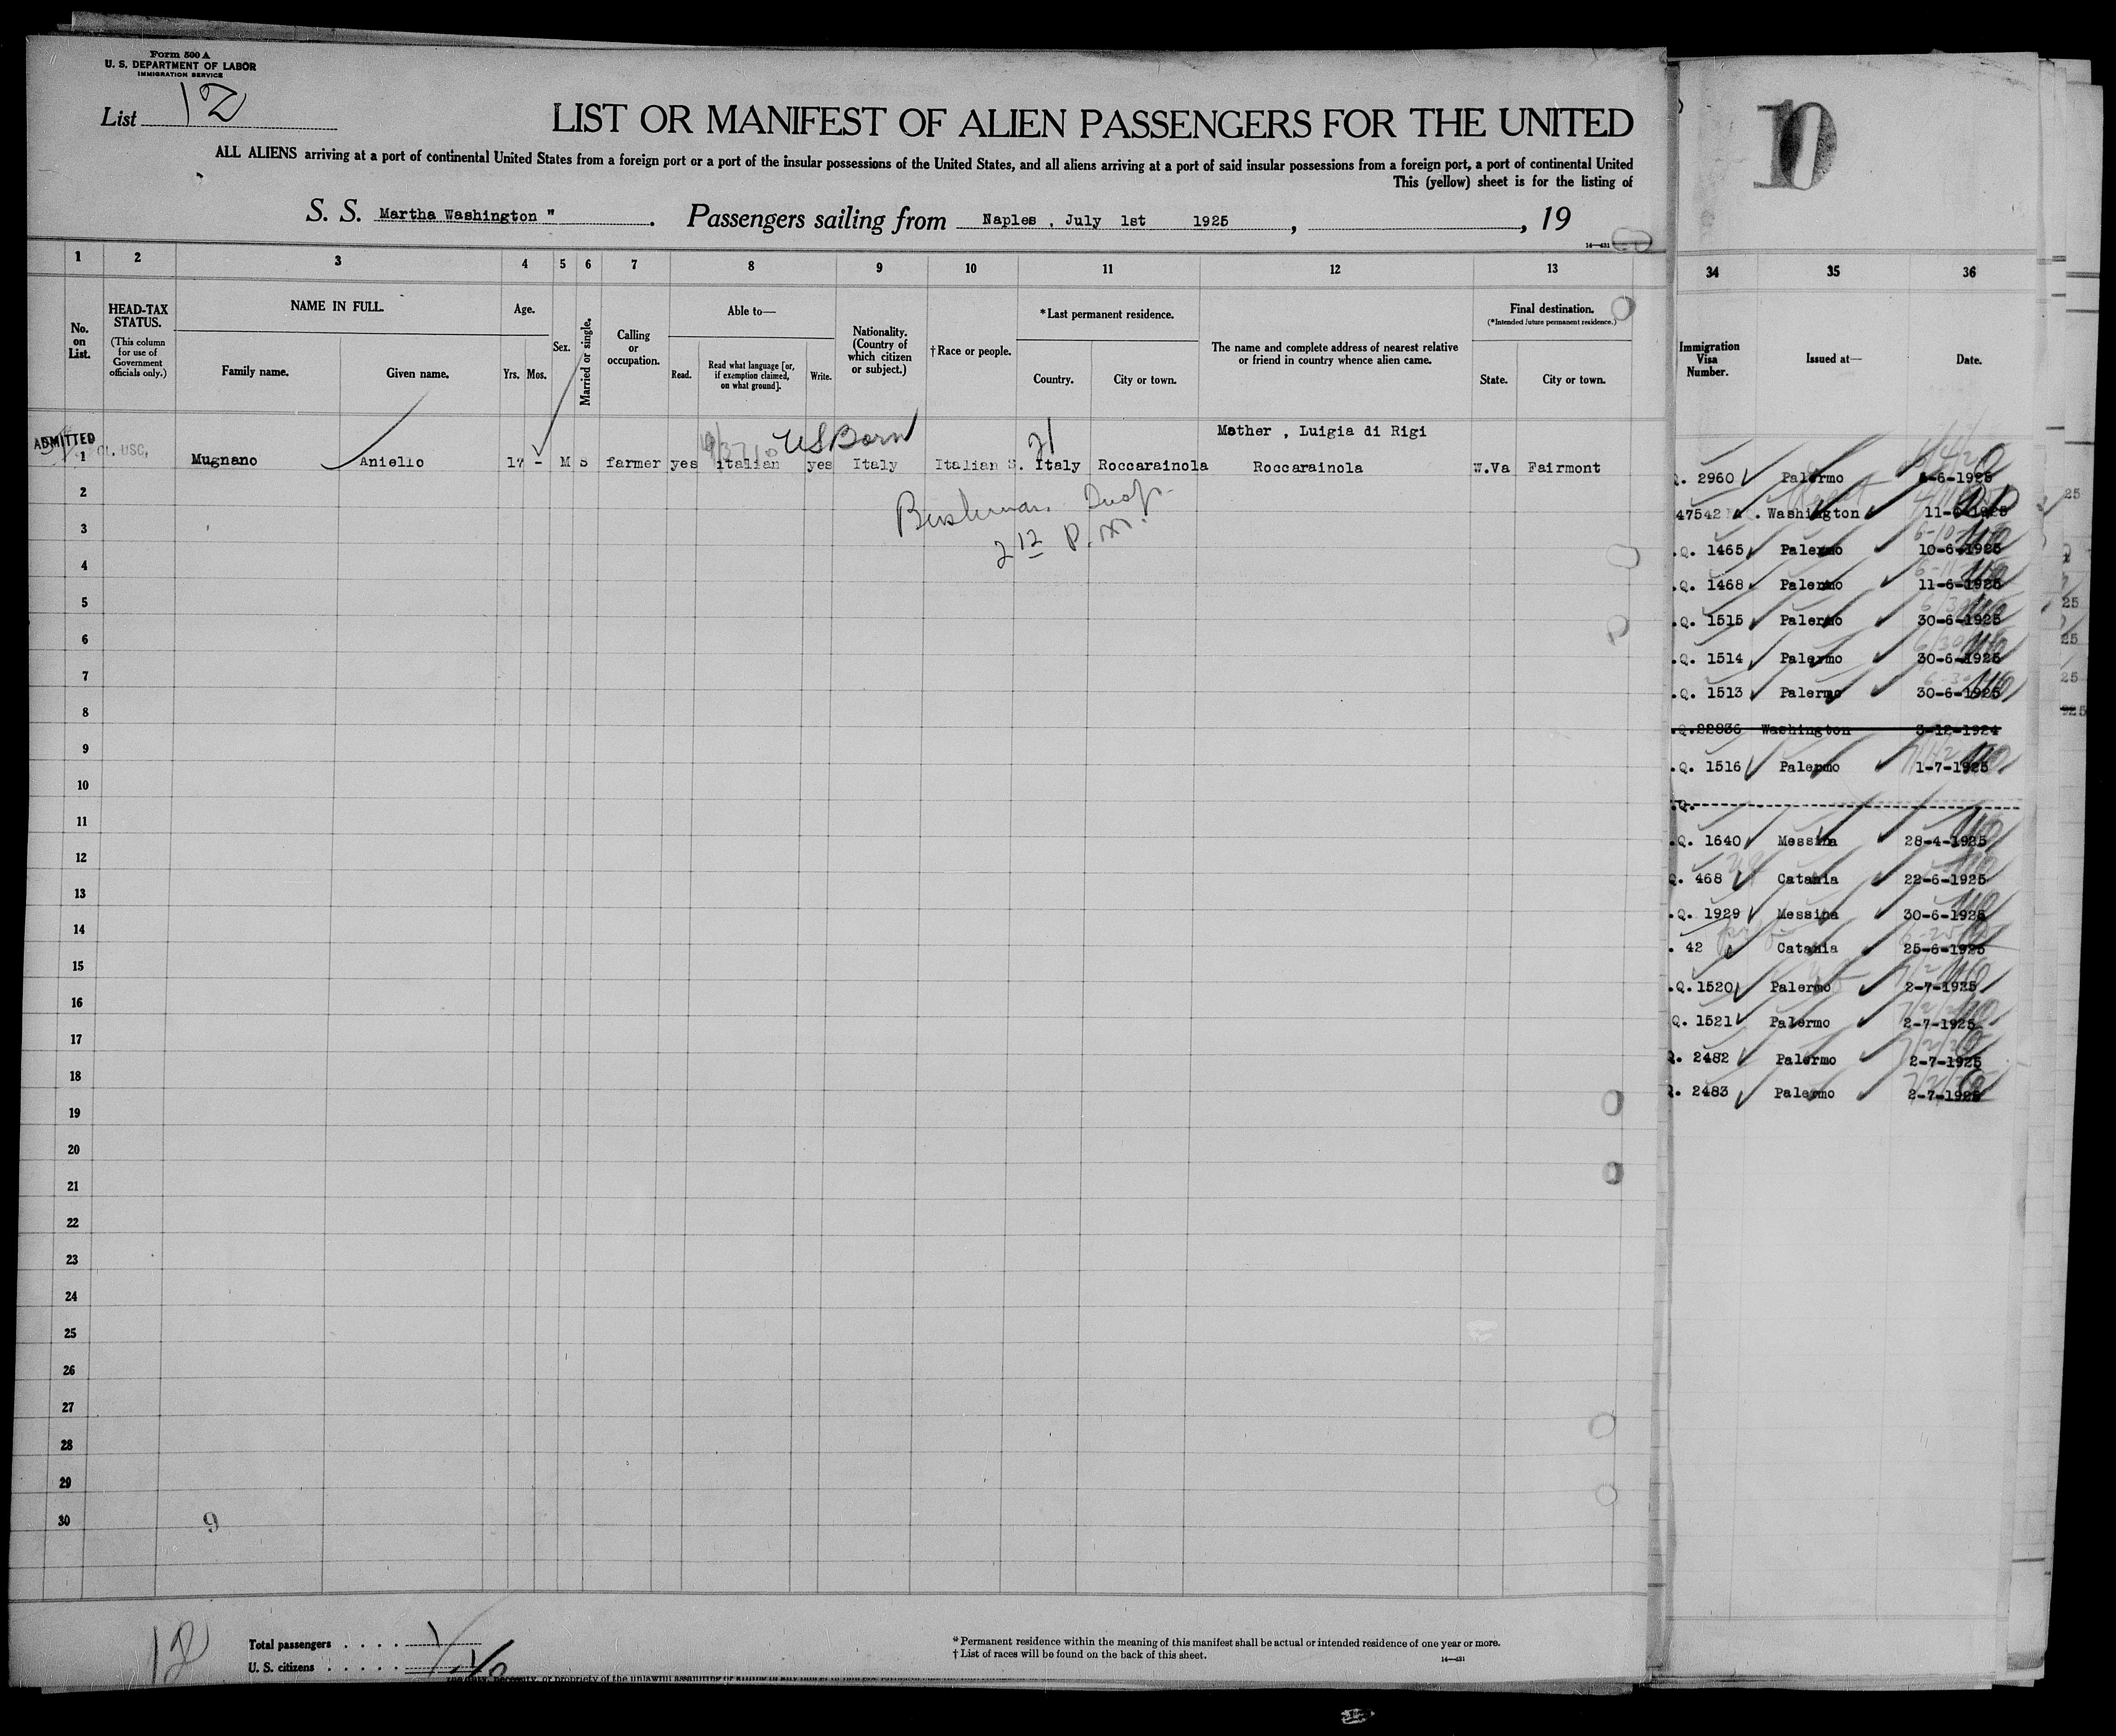 Form 500 A
U. S. DEPARTMENT OF LABOR
IMMIGRATION SERVICE
List 12
LIST OR MANIFEST OF ALIEN PASSENGERS FOR THE UNITED
ALL ALIENS arriving at a port of continental United States from a foreign port or a port of the insular possessions of the United States, and all aliens arriving at a port of said insular possessions from a foreign port, a port of continental United
This (yellow) sheet is for the listing of
S. S. Martha Washington " . Passengers sailing from Naples , July 1st 1925 , , 19
14—431
1 2 3 4 5 6 7 8 9 10 11 12 13
No. on List.
HEAD-TAX STATUS.
(This column for use of Government officials only.)
NAME IN FULL.
Family name. Given name.
Age.
Yrs. Mos.
Sex.
Married or single.
Calling or occupation.
Able to—
Read. Read what language [or, if exemption claimed, on what ground]. Write.
Nationality. (Country of which citizen or subject.)
†Race or people.
*Last permanent residence.
Country. City or town.
The name and complete address of nearest relative or friend in country whence alien came.
Final destination.
(*Intended future permanent residence.)
State. City or town.
ADMITTED
USC,
US Born
21
Mother , Luigia di Rigi
1 Mugnano Aniello 17 - M S farmer yes italian yes Italy Italian S. Italy Roccarainola Roccarainola W.Va Fairmont
2 12 P.M.
2
3
4
5
6
7
8
9
10
11
12
13
14
15
16
17
18
19
20
21
22
23
24
25
26
27
28
29
30
9
12
Total passengers . . . . 1
U. S. citizens . . . . .
* Permanent residence within the meaning of this manifest shall be actual or intended residence of one year or more.
† List of races will be found on the back of this sheet.
14—431
10
34 35 36
Immigration Visa Number. Issued at— Date.
Q. 2960 Palermo 6-6-1925
47542 Washington 11-6-1925
.Q. 1465 Palermo 10-6-1925
.Q. 1468 Palermo 11-6-1925
.Q. 1515 Palermo 30-6-1925
.Q. 1514 Palermo 30-6-1925
.Q. 1513 Palermo 30-6-1925
.Q.22836 Washington 3-12-1924
.Q. 1516 Palermo 1-7-1925
.Q.
.Q. 1640 Messina 28-4-1925
Q. 468 Catania 22-6-1925
.Q. 1929 Messina 30-6-1925
. 42 Catania 25-6-1925
.Q. 1520 Palermo 2-7-1925
Q. 1521 Palermo 2-7-1925
Q. 2482 Palermo 2-7-1925
Q. 2483 Palermo 2-7-1925